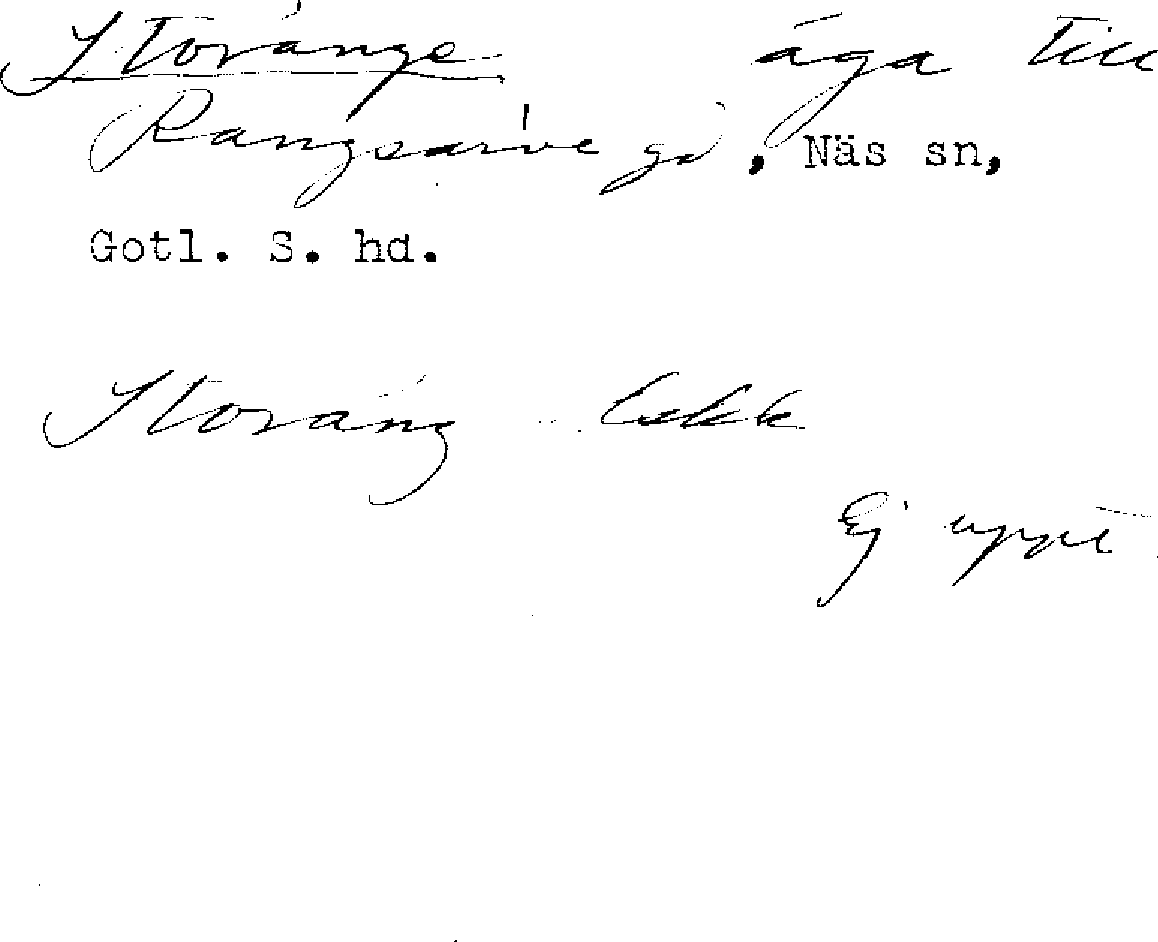 Storänge äga till
Rangsarve gd, Näs sn,
Gotl. S. hd.
Storäng Ekk
Ej uppt